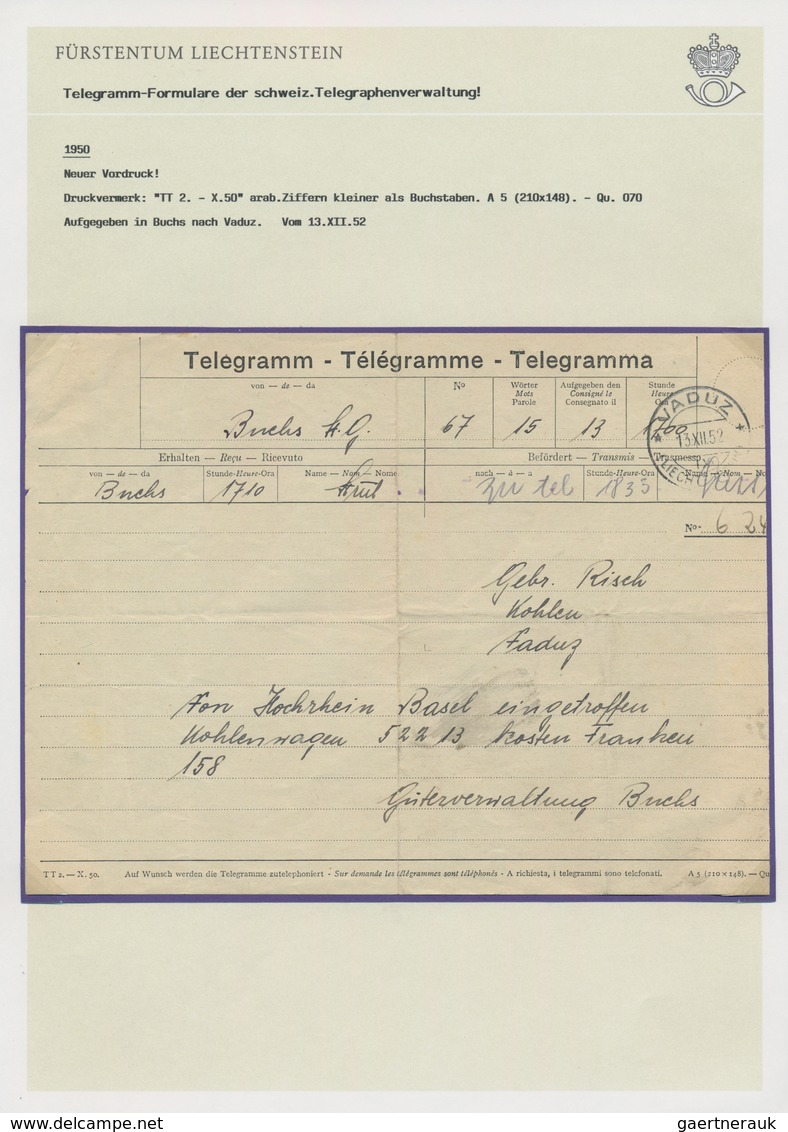 FÜRSTENTUM LIECHTENSTEIN
Telegramm-Formulare der schweiz.Telegraphenverwaltung!
1950
Neuer Vordruck!
Druckvermerk: "TT 2. - X.50" arab.Ziffern kleiner als Buchstaben. A 5 (210x148). - Qu. 070
Aufgegeben in Buchs nach Vaduz. Vom 13.XII.52
Telegramm - Télégramme - Telegramma
von — de — da
No
Wörter Mots Parole
Aufgegeben den Consigné le Consegnato il
Stunde Heure Ora
Buchs S.G. 67 15 13 1700
VADUZ
13.XII.52
LIECH
Erhalten — Reçu — Ricevuto
Befördert — Transmis — Trasmesso
von — de — da
Stunde-Heure-Ora
Name — Nom — Nome
nach — à — a
Stunde-Heure-Ora
Name — Nom — No
Buchs 1710 zu tel 1833
No. 6 24
Gebr. Risch
Kohlen
Vaduz
Von Hochrhein Basel eingetroffen
Kohlenwagen 522 13 kosten Franken
158
Güterverwaltung Buchs
TT 2. — X. 50. Auf Wunsch werden die Telegramme zutelephoniert - Sur demande les télégrammes sont téléphonés - A richiesta, i telegrammi sono telefonati. A 5 (210 × 148). — Qu
www.delcampe.net
gaertnerauk